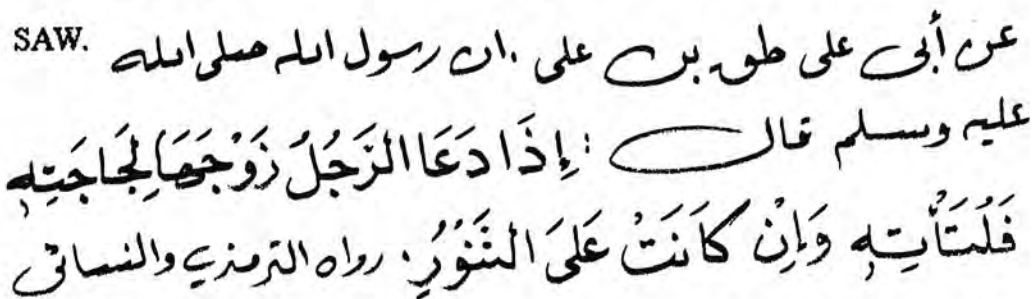 عن أبى على طلق بن على . ان رسول الله صلى الله SAW.
عليه وسلم قال : إِذَا دَعَا الرَّجُلُ زَوْجَهَا لِحَاجَتِهِ
فَلْتَأْتِهِ وَإِنْ كَانَتْ عَلَى التَّنُّوْرِ. رواه الترمذي والنسائى